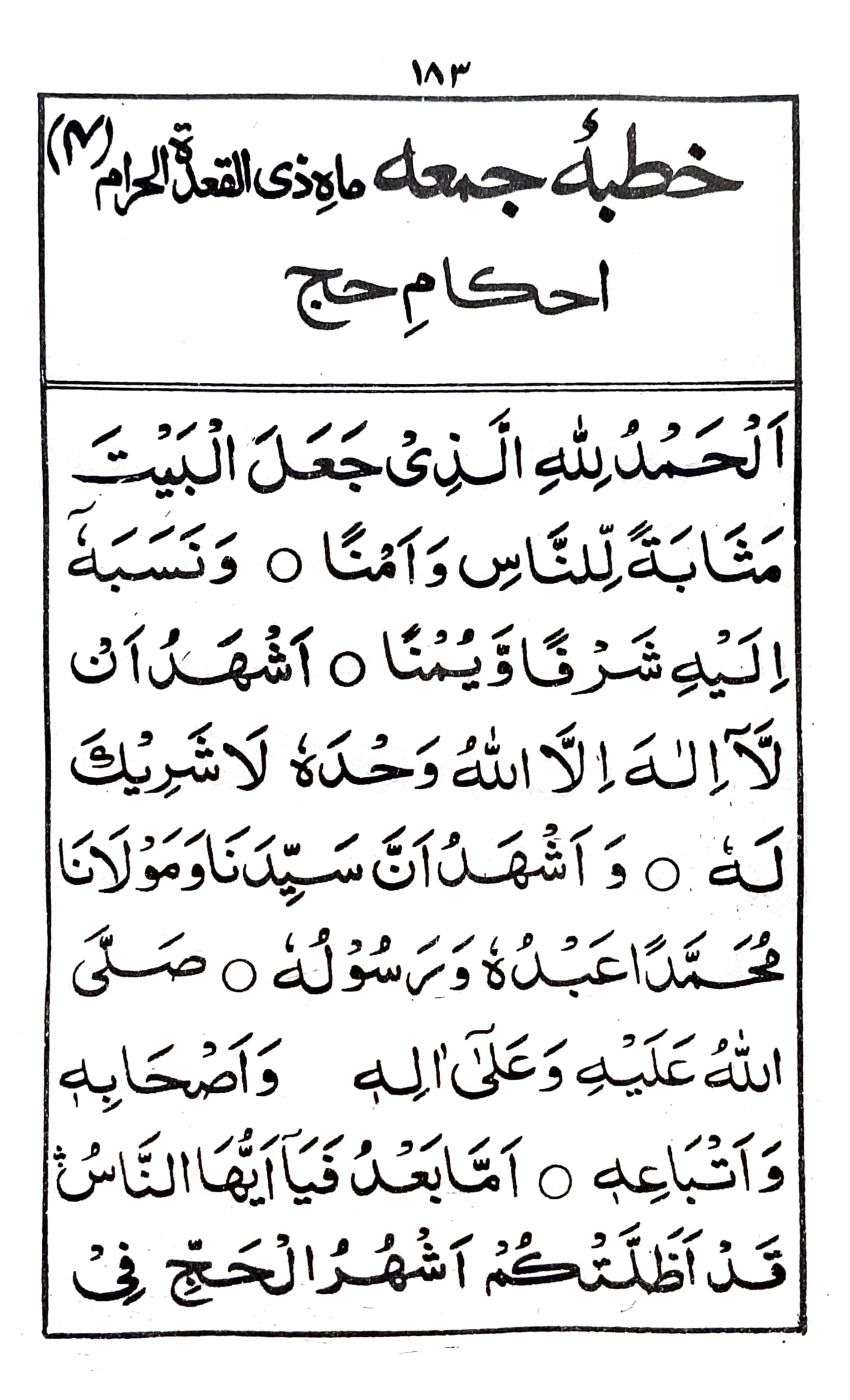 ۱۸۳
خطبۂ جمعہ ماہِ ذی القعدۃ الحرام (۴)
احکامِ حج
اَلْحَمْدُ لِلّٰهِ الَّذِیْ جَعَلَ الْبَيْتَ
مَثَابَةً لِّلنَّاسِ وَاَمْنًا ○ وَنَسَبَهٗٓ
اِلَيْهِ شَرْفًا وَّيُمْنًا ○ اَشْهَدُ اَنْ
لَّآ اِلٰهَ اِلَّا اللّٰهُ وَحْدَهٗ لَا شَرِيْكَ
لَهٗ ○ وَ اَشْهَدُ اَنَّ سَيِّدَنَا وَمَوْلَانَا
مُحَمَّدًا عَبْدُهٗ وَرَسُوْلُهٗ ○ صَلَّى
اللّٰهُ عَلَيْهِ وَعَلٰٓى اٰلِهٖ وَاَصْحَابِهٖ
وَاَتْبَاعِهٖ ○ اَمَّا بَعْدُ فَيَآ اَيُّهَا النَّاسُ
قَدْ اَظَلَّتْكُمْ اَشْهُرُ الْحَجِّ فِیْ